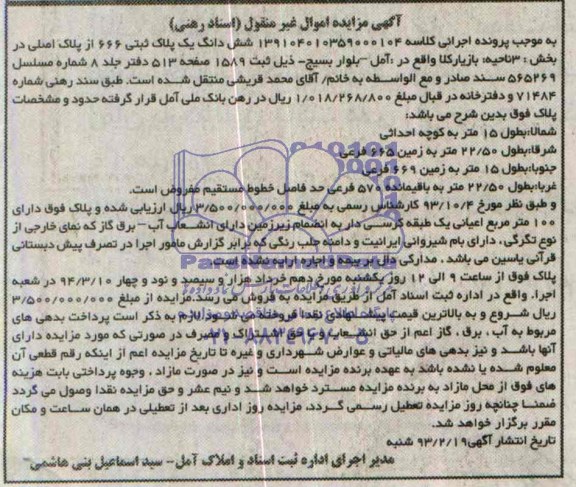 آگهی مزایده اموال غیر منقول (اسناد رهنی)
به موجب پرونده اجرائی کلاسه ۱۳۹۱۰۴۰۱۰۳۵۹۰۰۰۱۰۴ شش دانگ یک پلاک ثبتی ۶۶۶ از پلاک اصلی در
بخش : ۳ناحیه: بازیارکلا واقع در :آمل –بلوار بسیج– ذیل ثبت ۱۵۸۹ صفحه ۵۱۳ دفتر جلد ۸ شماره مسلسل
۵۶۵۲۶۹ سند صادر و مع الواسطه به خانم/ آقای محمد قریشی منتقل شده است. طبق سند رهنی شماره
۷۱۴۸۴ و دفترخانه در قبال مبلغ ۱/۰۱۸/۲۶۸/۸۰۰ ریال در رهن بانک ملی آمل قرار گرفته حدود و مشخصات
پلاک فوق بدین شرح می باشد:
شمالا:بطول ۱۵ متر به کوچه احداثی
شرقا:بطول ۲۲/۵۰ متر به زمین ۶۶۵ فرعی
جنوبا:بطول ۱۵ متر به زمین ۶۶۹ فرعی
غربا:بطول ۲۲/۵۰ متر به باقیمانده ۵۷۰ فرعی حد فاصل خطوط مستقیم مفروض است.
و طبق نظر مورخ ۹۳/۱۰/۴ کارشناس رسمی به مبلغ ۳/۵۰۰/۰۰۰/۰۰۰ ریال ارزیابی شده و پلاک فوق دارای
۱۰۰ متر مربع اعیانی یک طبقه کرسی دار به انضمام زیرزمین دارای انشعاب آب– برق گاز که نمای خارجی از
نوع تگرگی، دارای بام شیروانی ایرانیت و دامنه حلب رنگی که برابر گزارش مامور اجرا در تصرف پیش دبستانی
قرآنی یاسین می باشد . مدارکی دال بر بیمه و اجاره ارایه نشده است.
پلاک فوق از ساعت ۹ الی ۱۲ روز یکشنبه مورخ دهم خرداد هزار و سیصد و نود و چهار ۹۴/۳/۱۰ در شعبه
اجرا. واقع در اداره ثبت اسناد آمل از طریق مزایده به فروش می رسد.مزایده از مبلغ ۳/۵۰۰/۰۰۰/۰۰۰
ریال شروع و به بالاترین قیمت پیشنهادی نقدا فروخته می شود.لازم به ذکر است پرداخت بدهی های
مربوط به آب ، برق ، گاز اعم از حق انشعاب و یا حق اشتراک و مصرف در صورتی که مورد مزایده دارای
آنها باشد و نیز بدهی های مالیاتی و عوارض شهرداری و غیره تا تاریخ مزایده اعم از اینکه رقم قطعی آن
معلوم شده یا نشده باشد به عهده برنده مزایده است و نیز در صورت مازاد ، وجوه پرداختی بابت هزینه
های فوق از محل مازاد به برنده مزایده مسترد خواهد شد و نیم عشر و حق مزایده نقدا وصول می گردد
ضمنا چنانچه روز مزایده تعطیل رسمی گردد، مزایده روز اداری بعد از تعطیلی در همان ساعت و مکان
مقرر برگزار خواهد شد.
تاریخ انتشار آگهی۹۳/۲/۱۹ شنبه
مدیر اجرای اداره ثبت اسناد و املاک آمل– سید اسماعیل بنی هاشمی